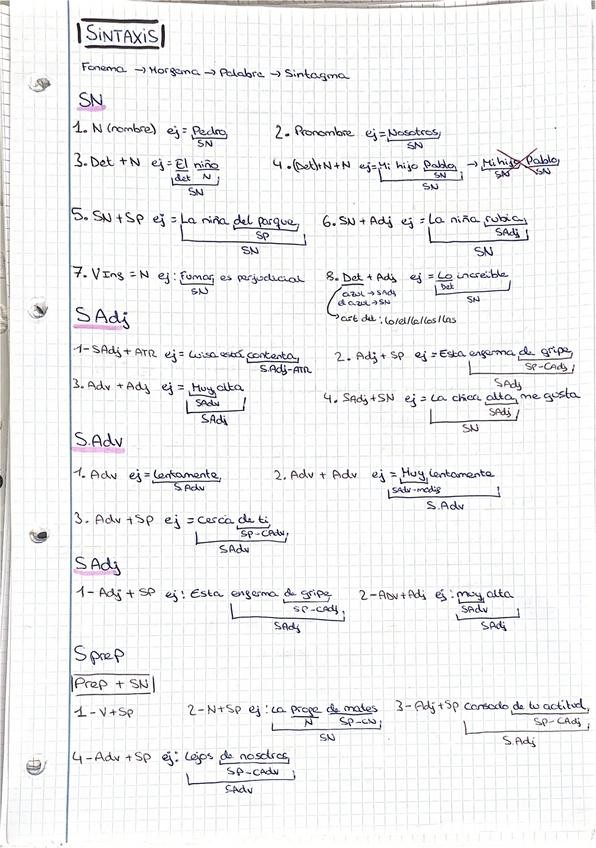 SiNTAXiS
Fonema → Morfema → Palabra → Sintagma
SN
1. N (nombre) ej = Pedro 2. Pronombre ej = Nosotros
SN SN
3. Det + N ej = El niño 4. (Det)+N+N ej = Mi hijo Pablo → Mi hijo Pablo
det N SN SN SN
SN SN
5. SN + SP ej = La niña del parque 6. SN + Adj ej = La niña rubia
SP SAdj
SN SN
7. V Ing = N ej: Fumar es perjudicial 8. Det + Adj ej = Lo increíble
SN Det
azul → SAdj SN
el azul → SN
art det: lo/el/la/los/las
SAdj
1- SAdj + ATR ej = Luisa está contenta 2. Adj + SP ej = Esta enferma de gripe
S.Adj-ATR SP-CAdj
SAdj
3. Adv + Adj ej = Muy alta 4. SAdj + SN ej = La chica alta me gusta
SAdv SAdj
SAdj SN
S.Adv
1. Adv ej = Lentamente 2. Adv + Adv ej = Muy lentamente
S.Adv SAdv-modif
S.Adv
3. Adv + SP ej = Cerca de ti
SP-CAdv
SAdv
SAdj
1- Adj + SP ej: Esta enferma de gripe 2- Adv + Adj ej: muy alta
SP-CAdj SAdv
SAdj SAdj
Sprep
Prep + SN
1- V + SP 2- N + SP ej: La profe de mates 3- Adj + SP cansado de tu actitud
N SP-CN SP-CAdj
SN S.Adj
4- Adv + SP ej: Lejos de nosotros
SP-CAdv
SAdv